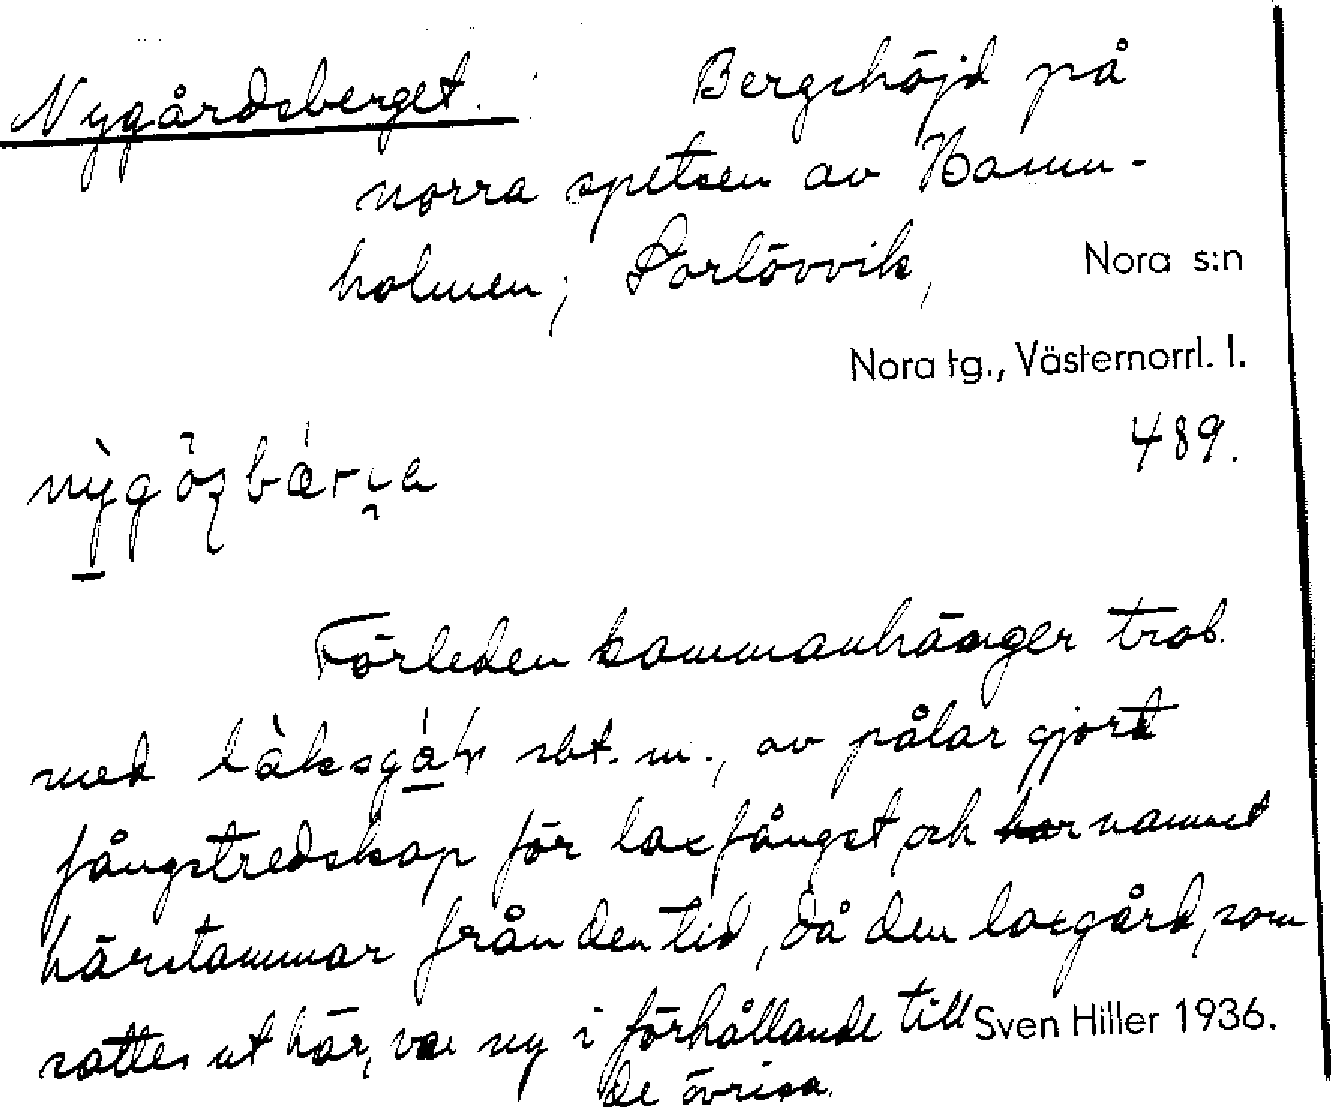 Nygårdsberget. Bergshöjd på
norra spetsen av Hamn-
holmen; Norlövvik, Nora s:n
Nora tg., Västernorrl. l.
489.
Förleden sammanhänger trol.
med sbt. m., av pålar gjort
fångstredskap för laxfångst och namnet
härstammar från den tid, då den laxgård, som
sattes ut här, var ny i förhållande till Sven Hiller 1936.
de övriga.